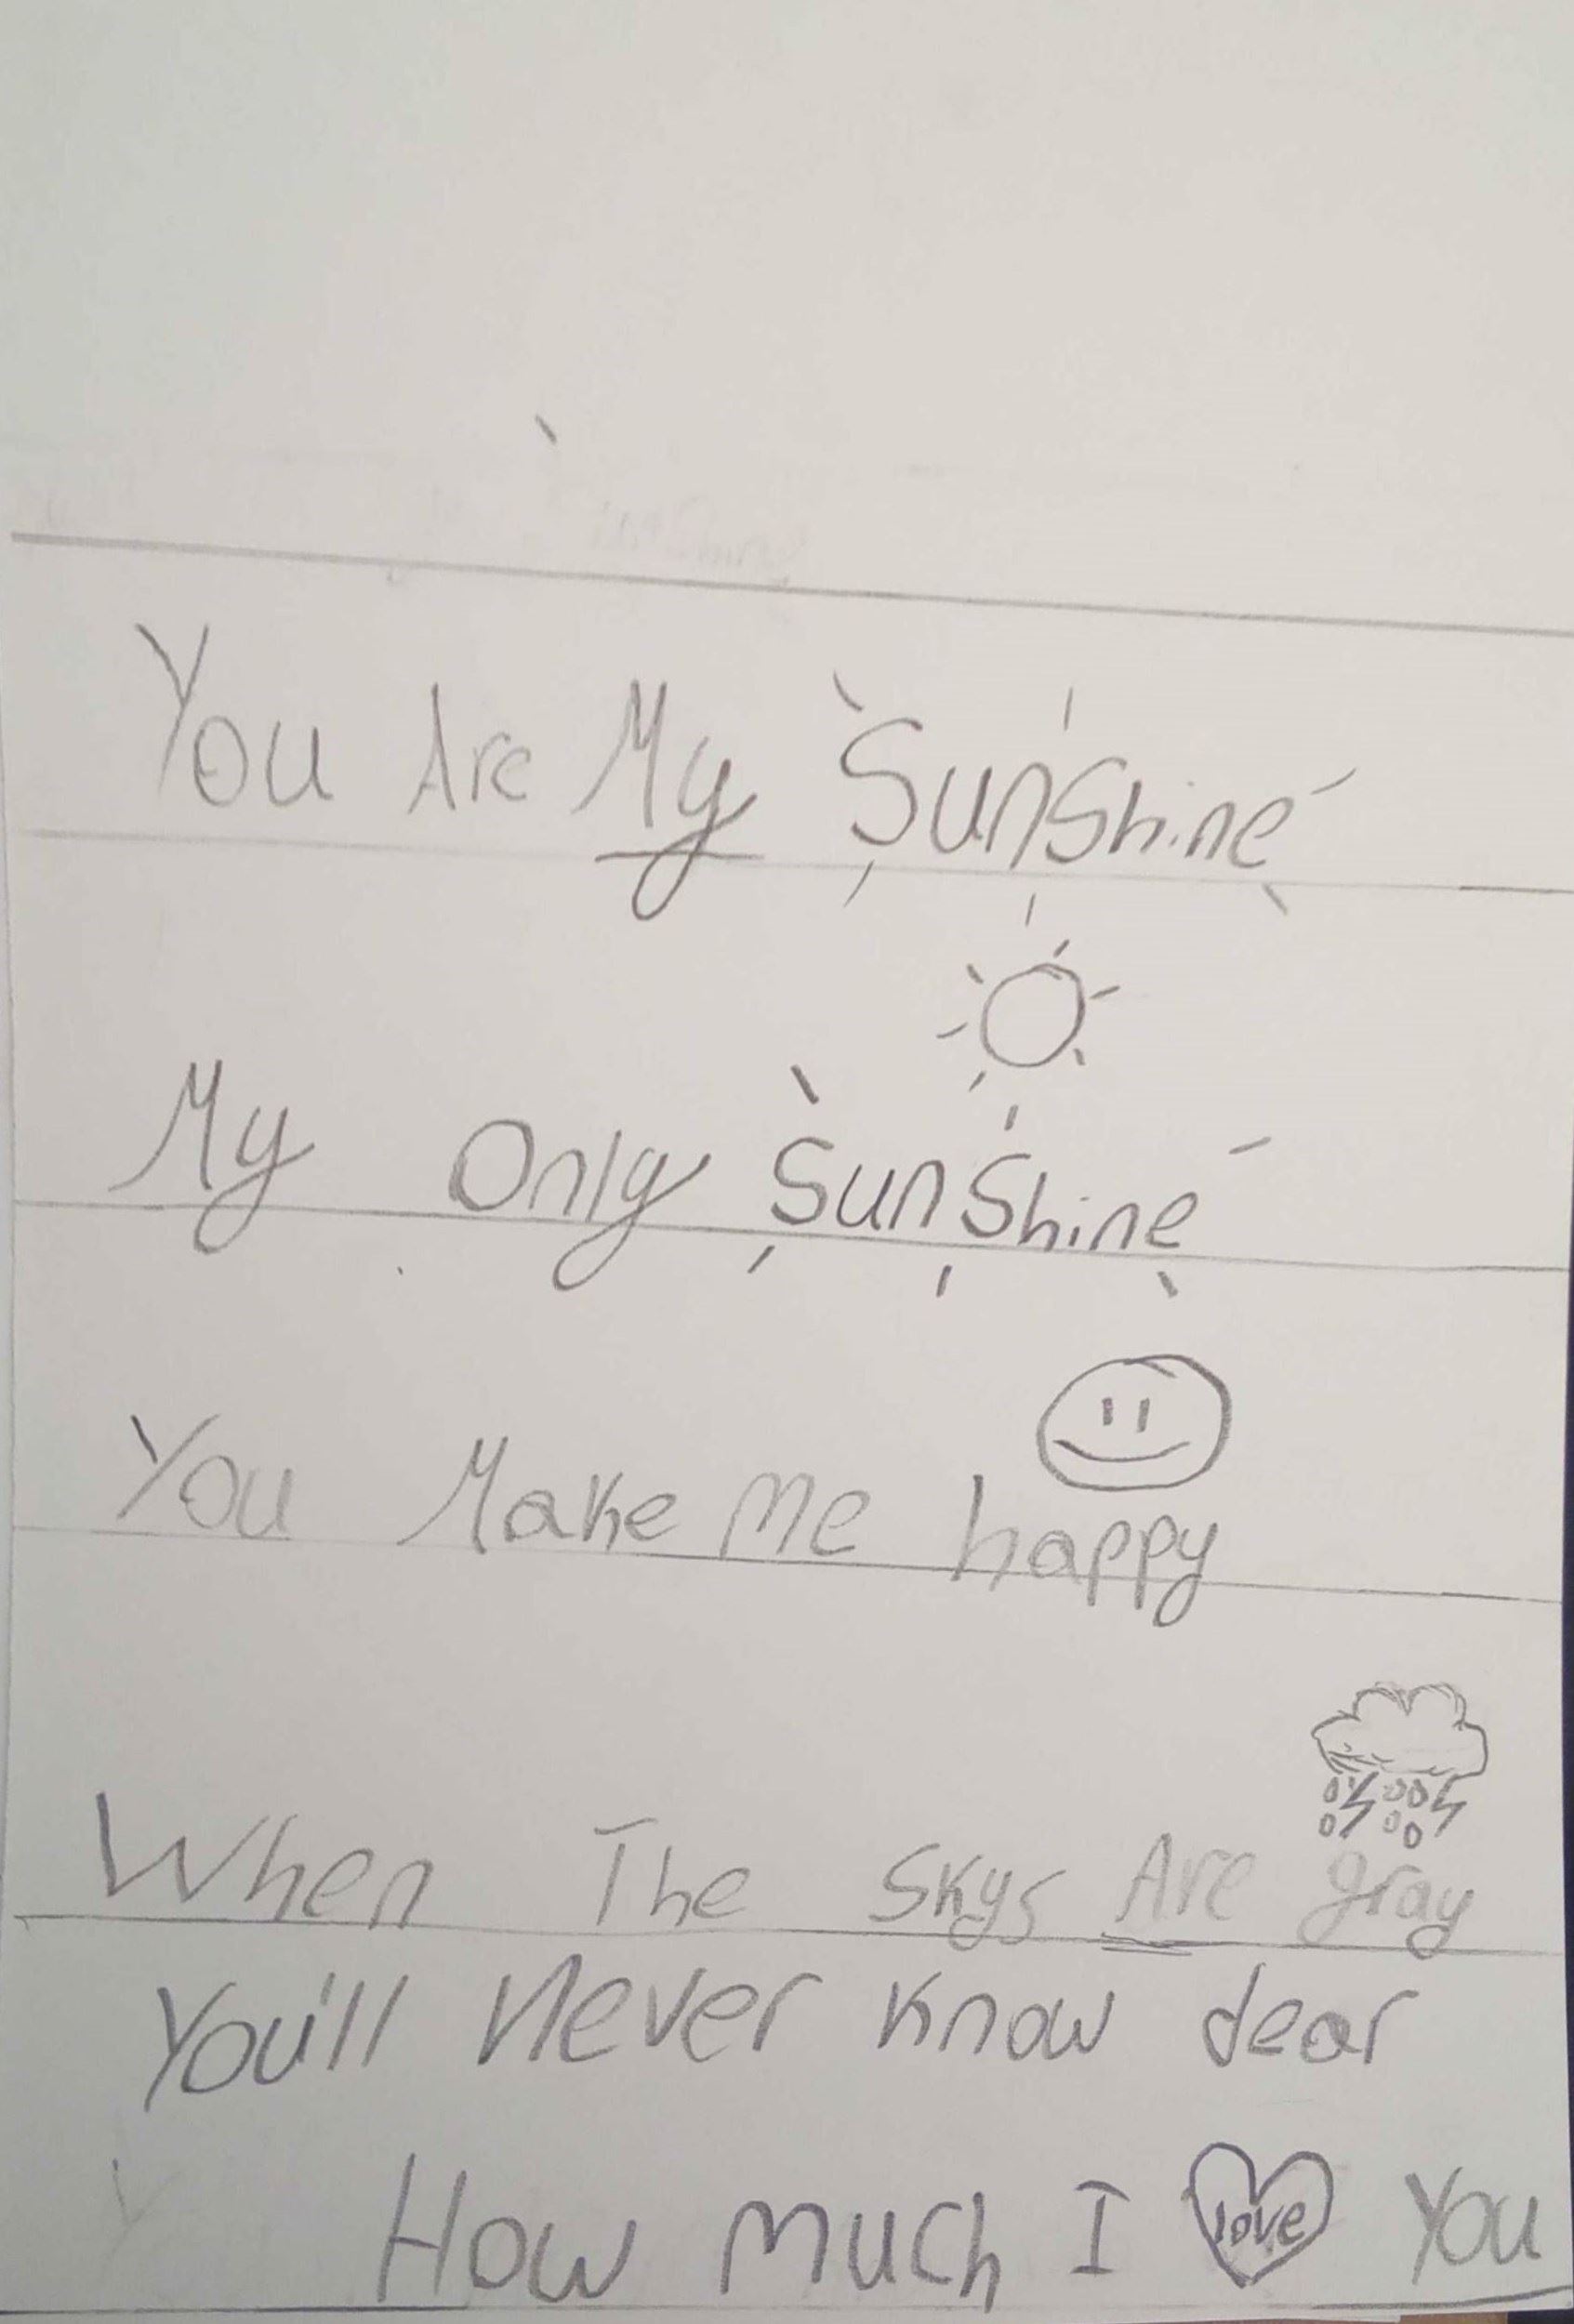 You Are My Sunshine
My Only Sunshine
You Make Me happy
When The Skys Are gray
You'll Never Know dear
How Much I love You